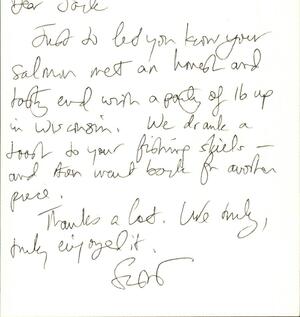 Dear Jack
Just to let you know your
salmon met an honest and
tasty end with a party of 16 up
in Wisconsin. We drank a
toast to your fishing skills —
and then went back for another
piece.
Thanks a lot. We truly,
truly enjoyed it.